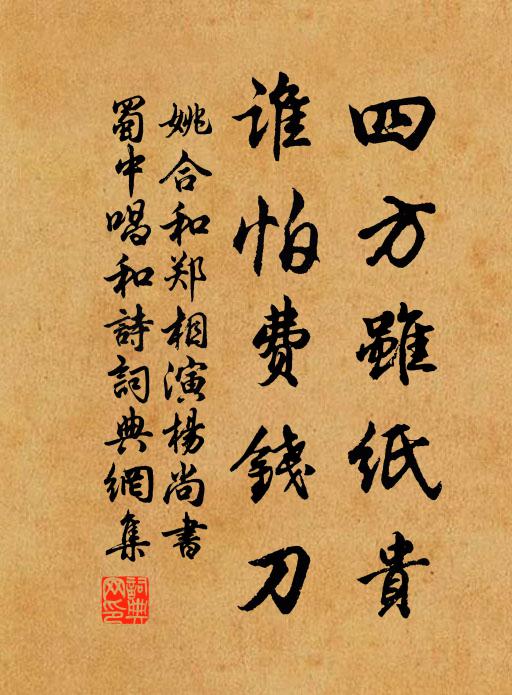 四方雖紙貴
誰怕費錢刀
姚合和郑相演楊尚書
蜀中唱和詩詞典網集
詞典網印